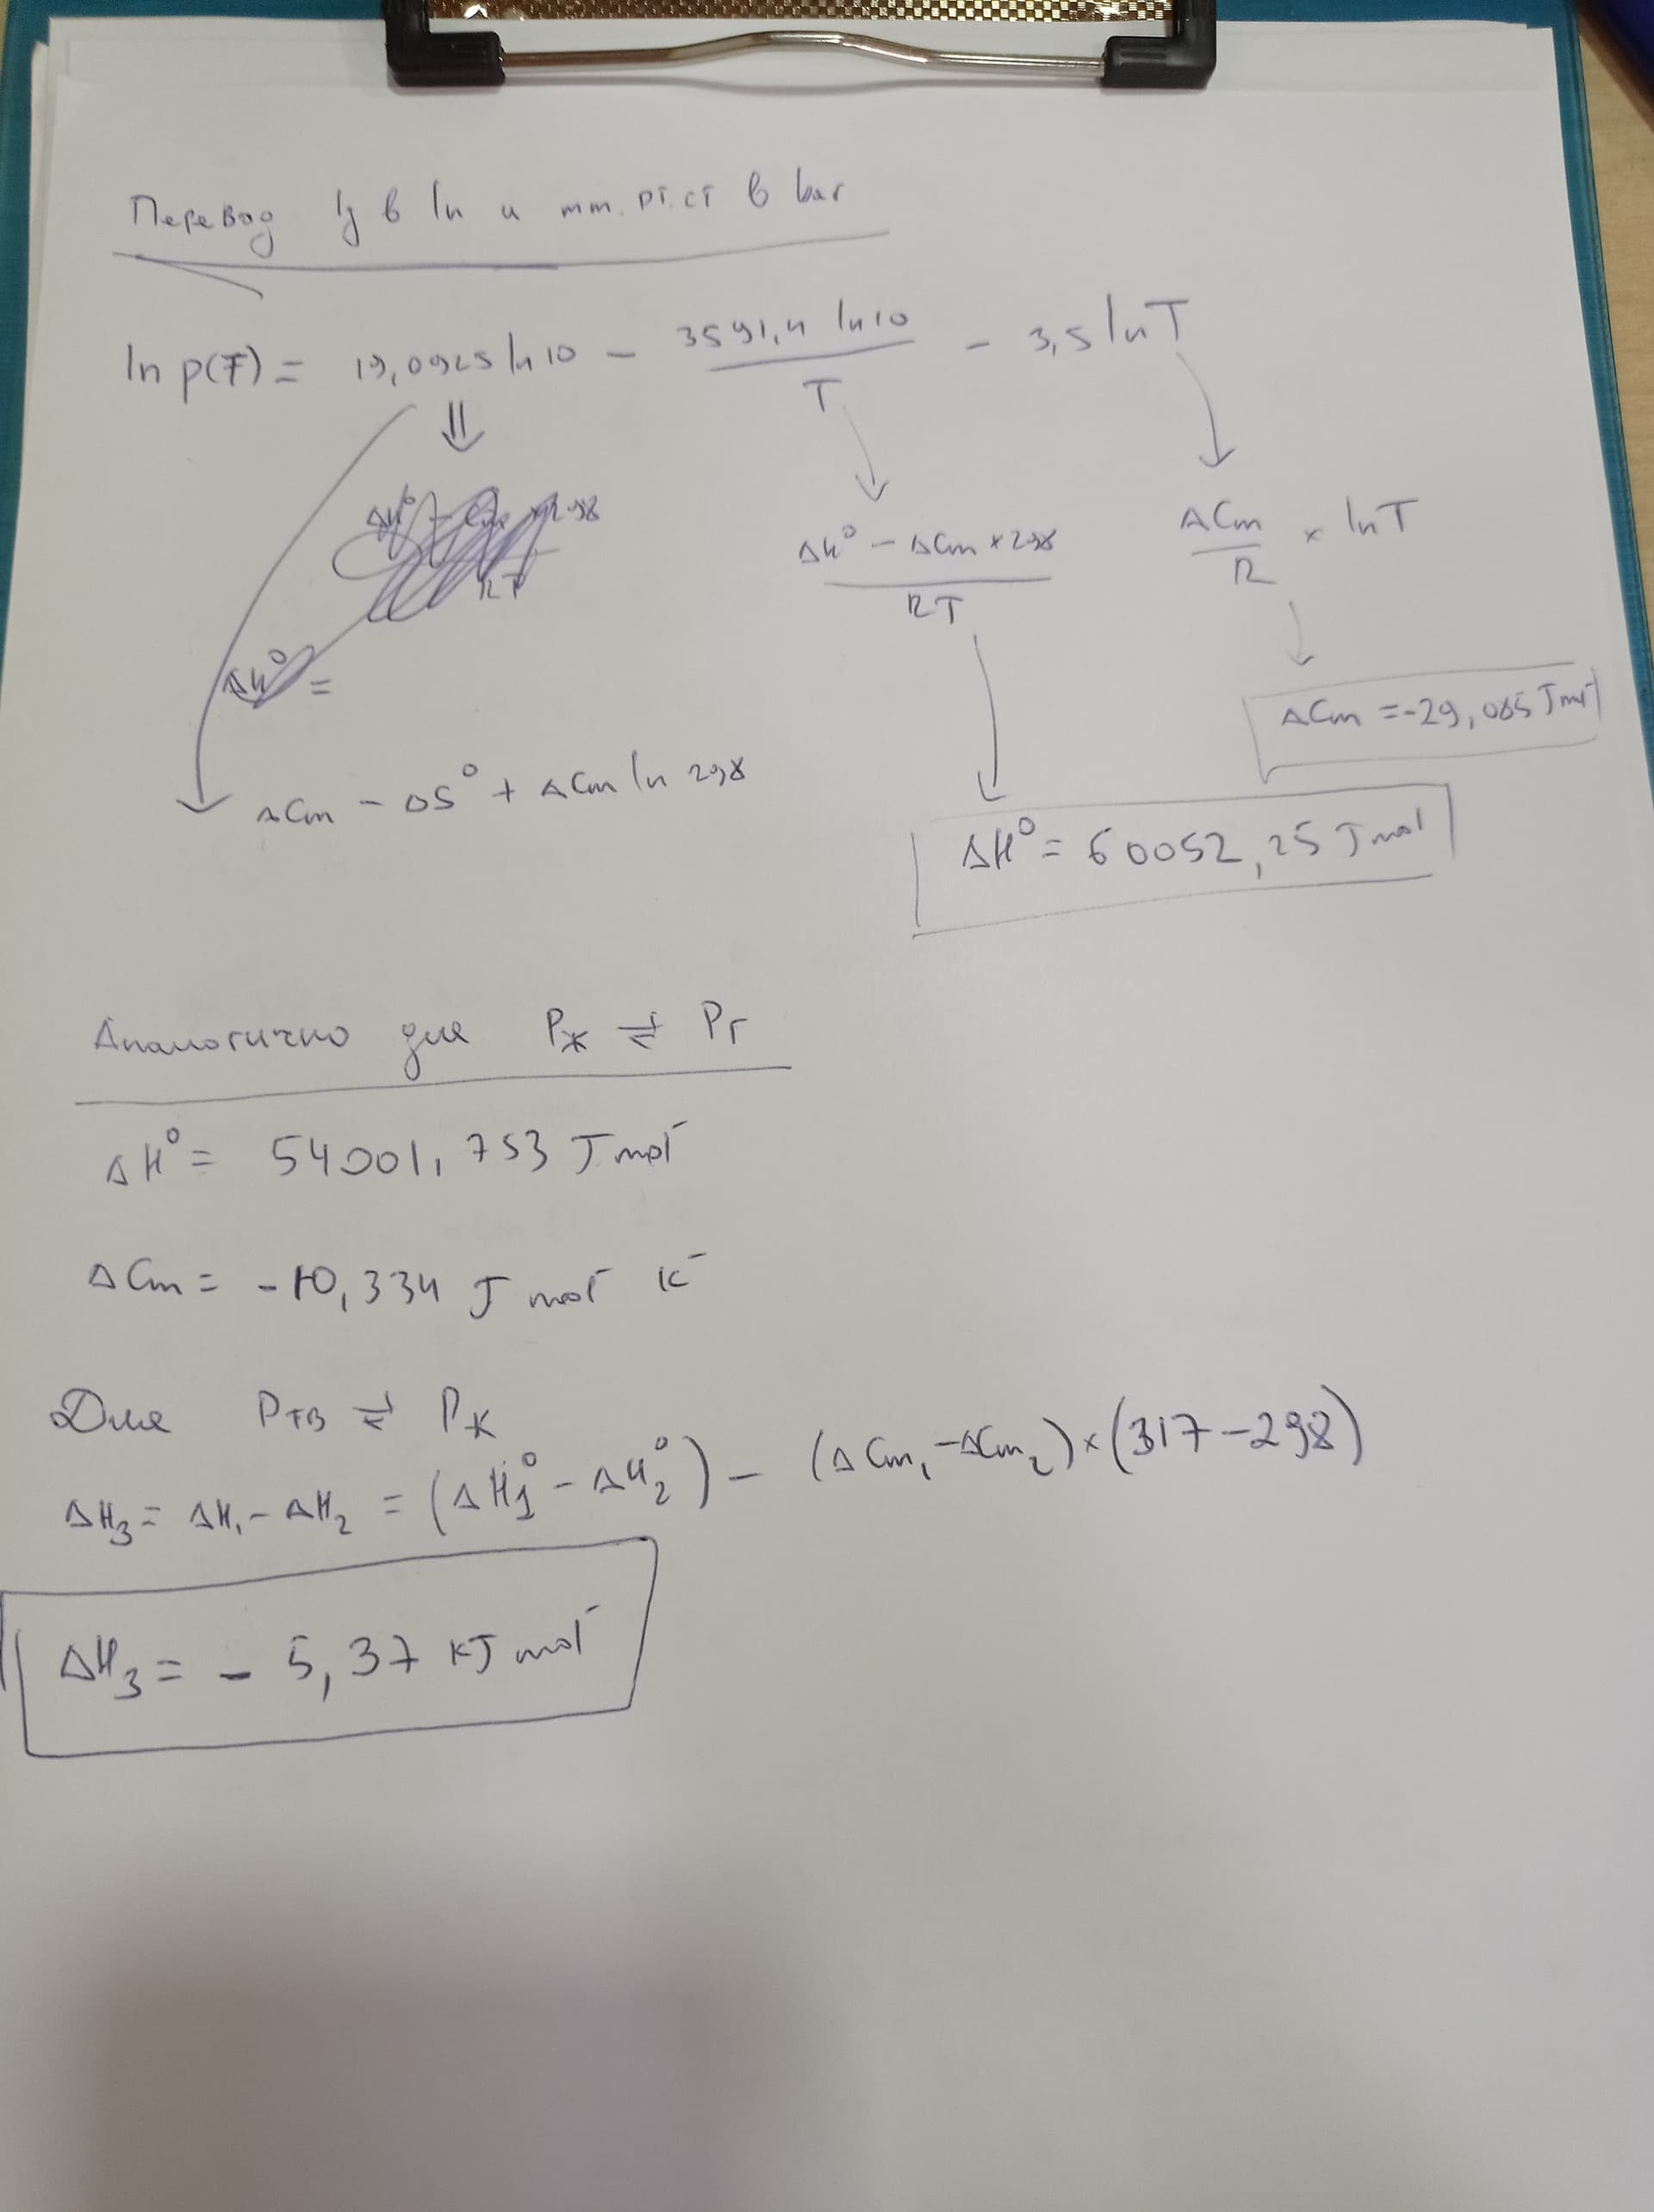 Перевод lg в ln и mm.рт.ст в bar
ln p(T) = 19,0925 ln10 − 3591,4 ln10 / T − 3,5 lnT
ΔH° − ΔCm × 298 / RT
ΔCm / R × lnT
ΔH° =
ΔCm = -29,085 J mol⁻
ΔCm − ΔS° + ΔCm ln 298
ΔH° = 60052,25 J mol
Аналогично для Pж ⇌ Pг
ΔH° = 54001,753 J mol⁻
ΔCm = -10,334 J mol⁻ K⁻
Для Pтв ⇌ Pж
ΔH₃ = ΔH₁ − ΔH₂ = (ΔH₁° − ΔH₂°) − (ΔCm₁ − ΔCm₂) × (317 − 298)
ΔH₃ = − 5,37 kJ mol⁻